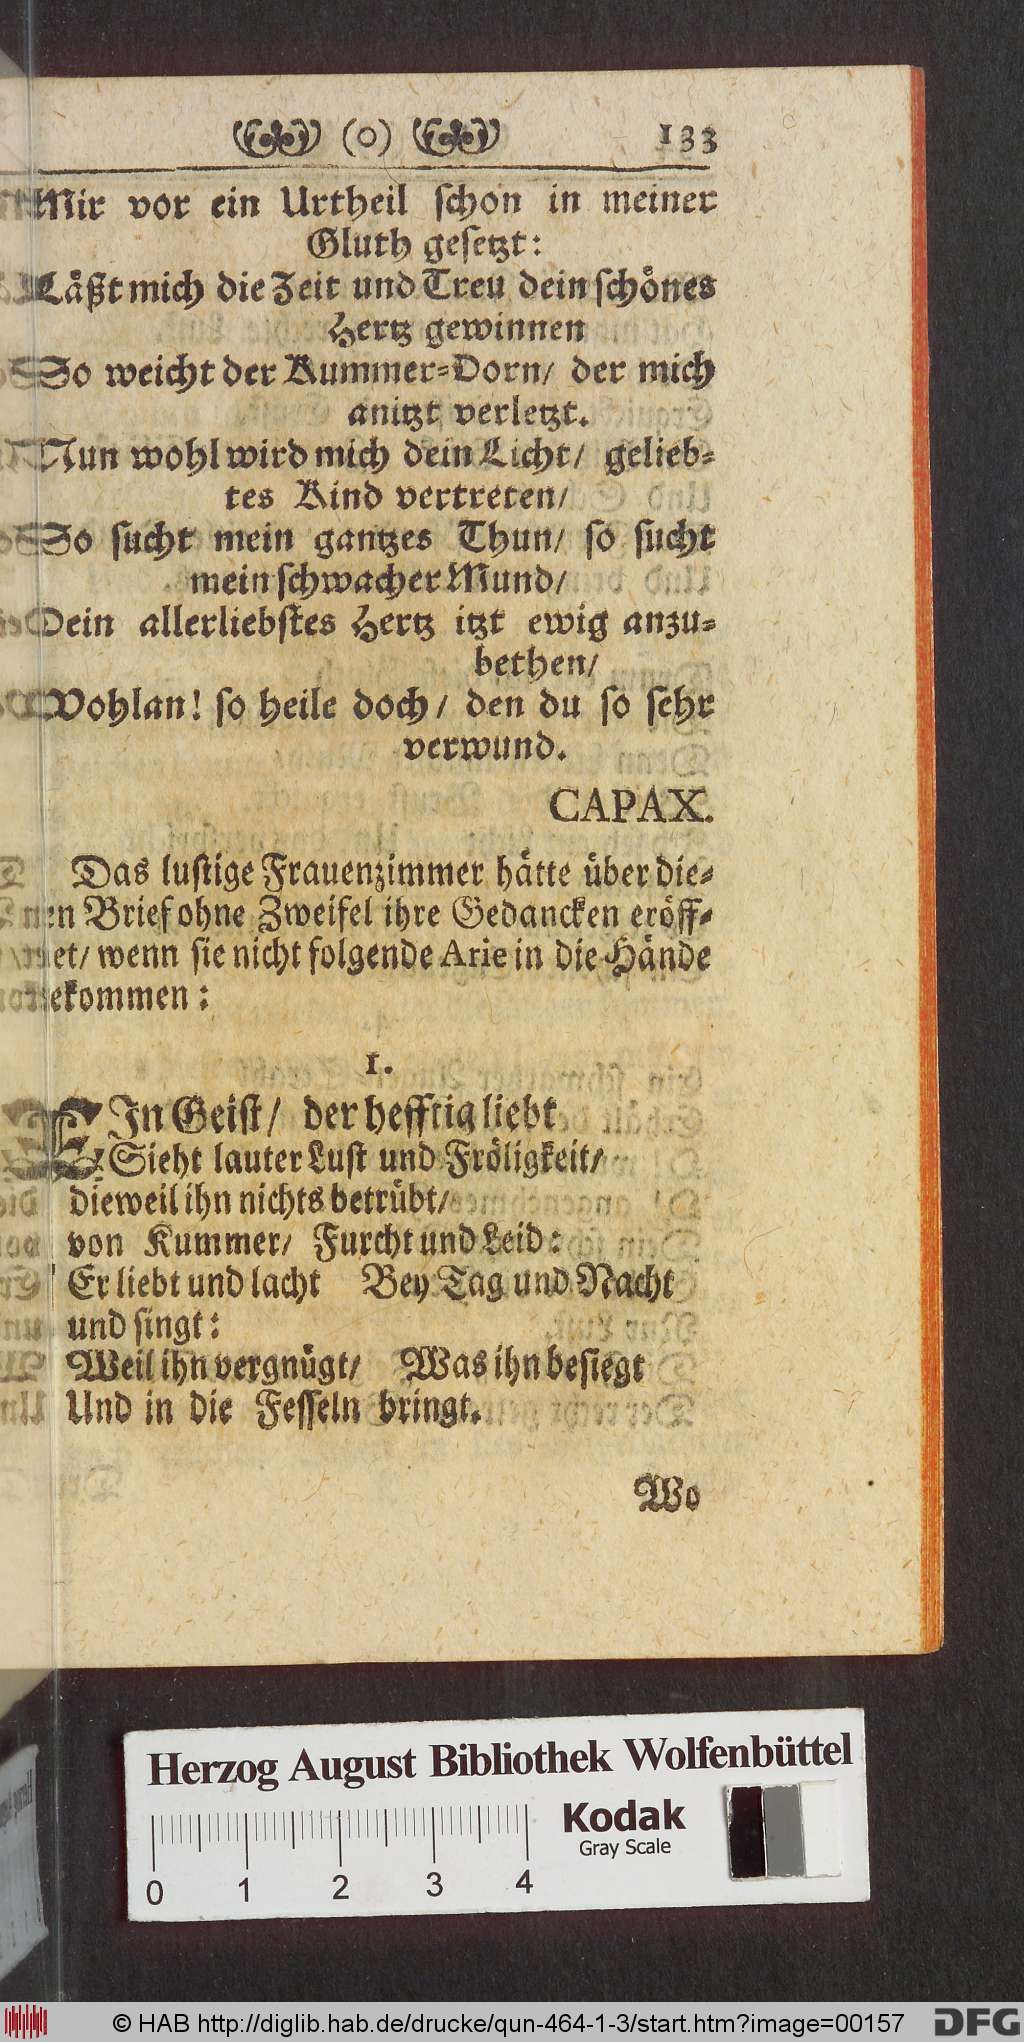 (o) 133
Mir vor ein Urtheil schon in meiner
Gluth gesetzt:
Läßt mich die Zeit und Treu dein schönes
Hertz gewinnen
So weicht der Kummer-Dorn/ der mich
anitzt verletzt.
Nun wohl wird mich dein Licht/ gelieb-
tes Kind vertreten/
So sucht mein gantzes Thun/ so sucht
mein schwacher Mund/
Dein allerliebstes Hertz itzt ewig anzu-
bethen/
Wohlan! so heile doch/ den du so sehr
verwund.
CAPAX.
Das lustige Frauenzimmer hätte über die-
sen Brief ohne Zweifel ihre Gedancken eröff-
net/ wenn sie nicht folgende Arie in die Hände
bekommen:
1.
EJn Geist/ der hefftig liebt
Sieht lauter Lust und Fröligkeit/
dieweil ihn nichts betrübt/
von Kummer/ Furcht und Leid:
Er liebt und lacht Bey Tag und Nacht
und singt:
Weil ihn vergnügt/ Was ihn besiegt
Und in die Fesseln bringt.
Wo
Herzog August Bibliothek Wolfenbüttel
Kodak
Gray Scale
0 1 2 3 4
© HAB http://diglib.hab.de/drucke/qun-464-1-3/start.htm?image=00157
DFG